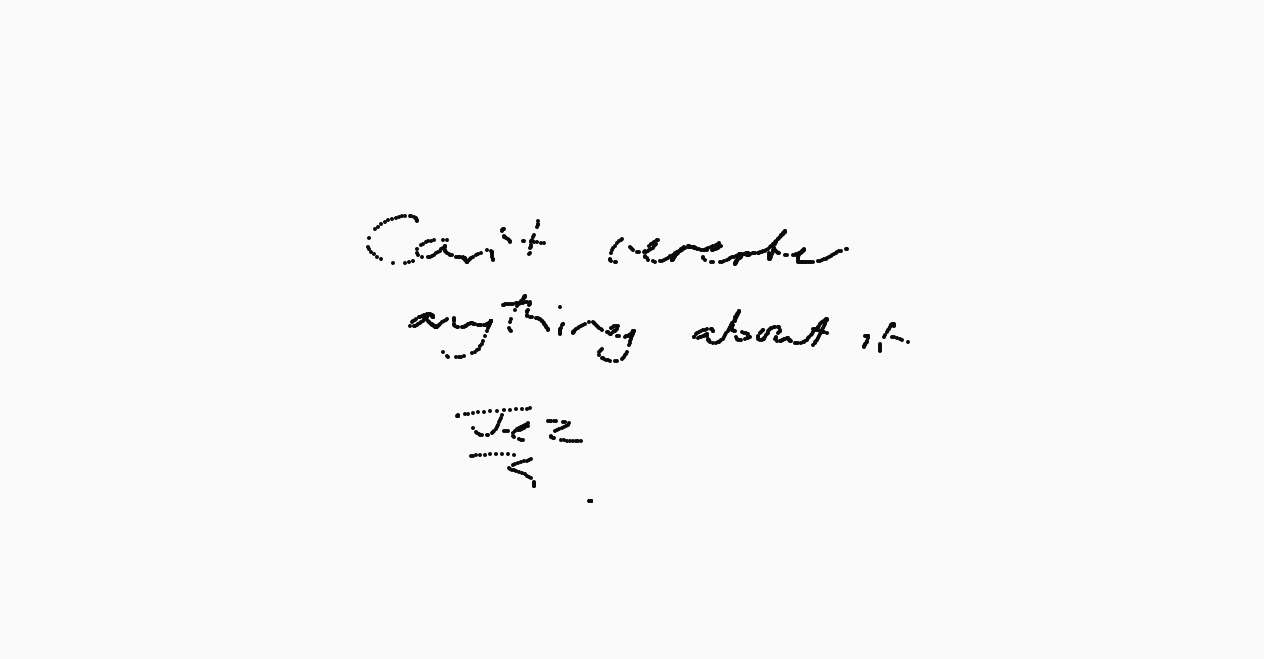 Can't remember
anything about it
Jez